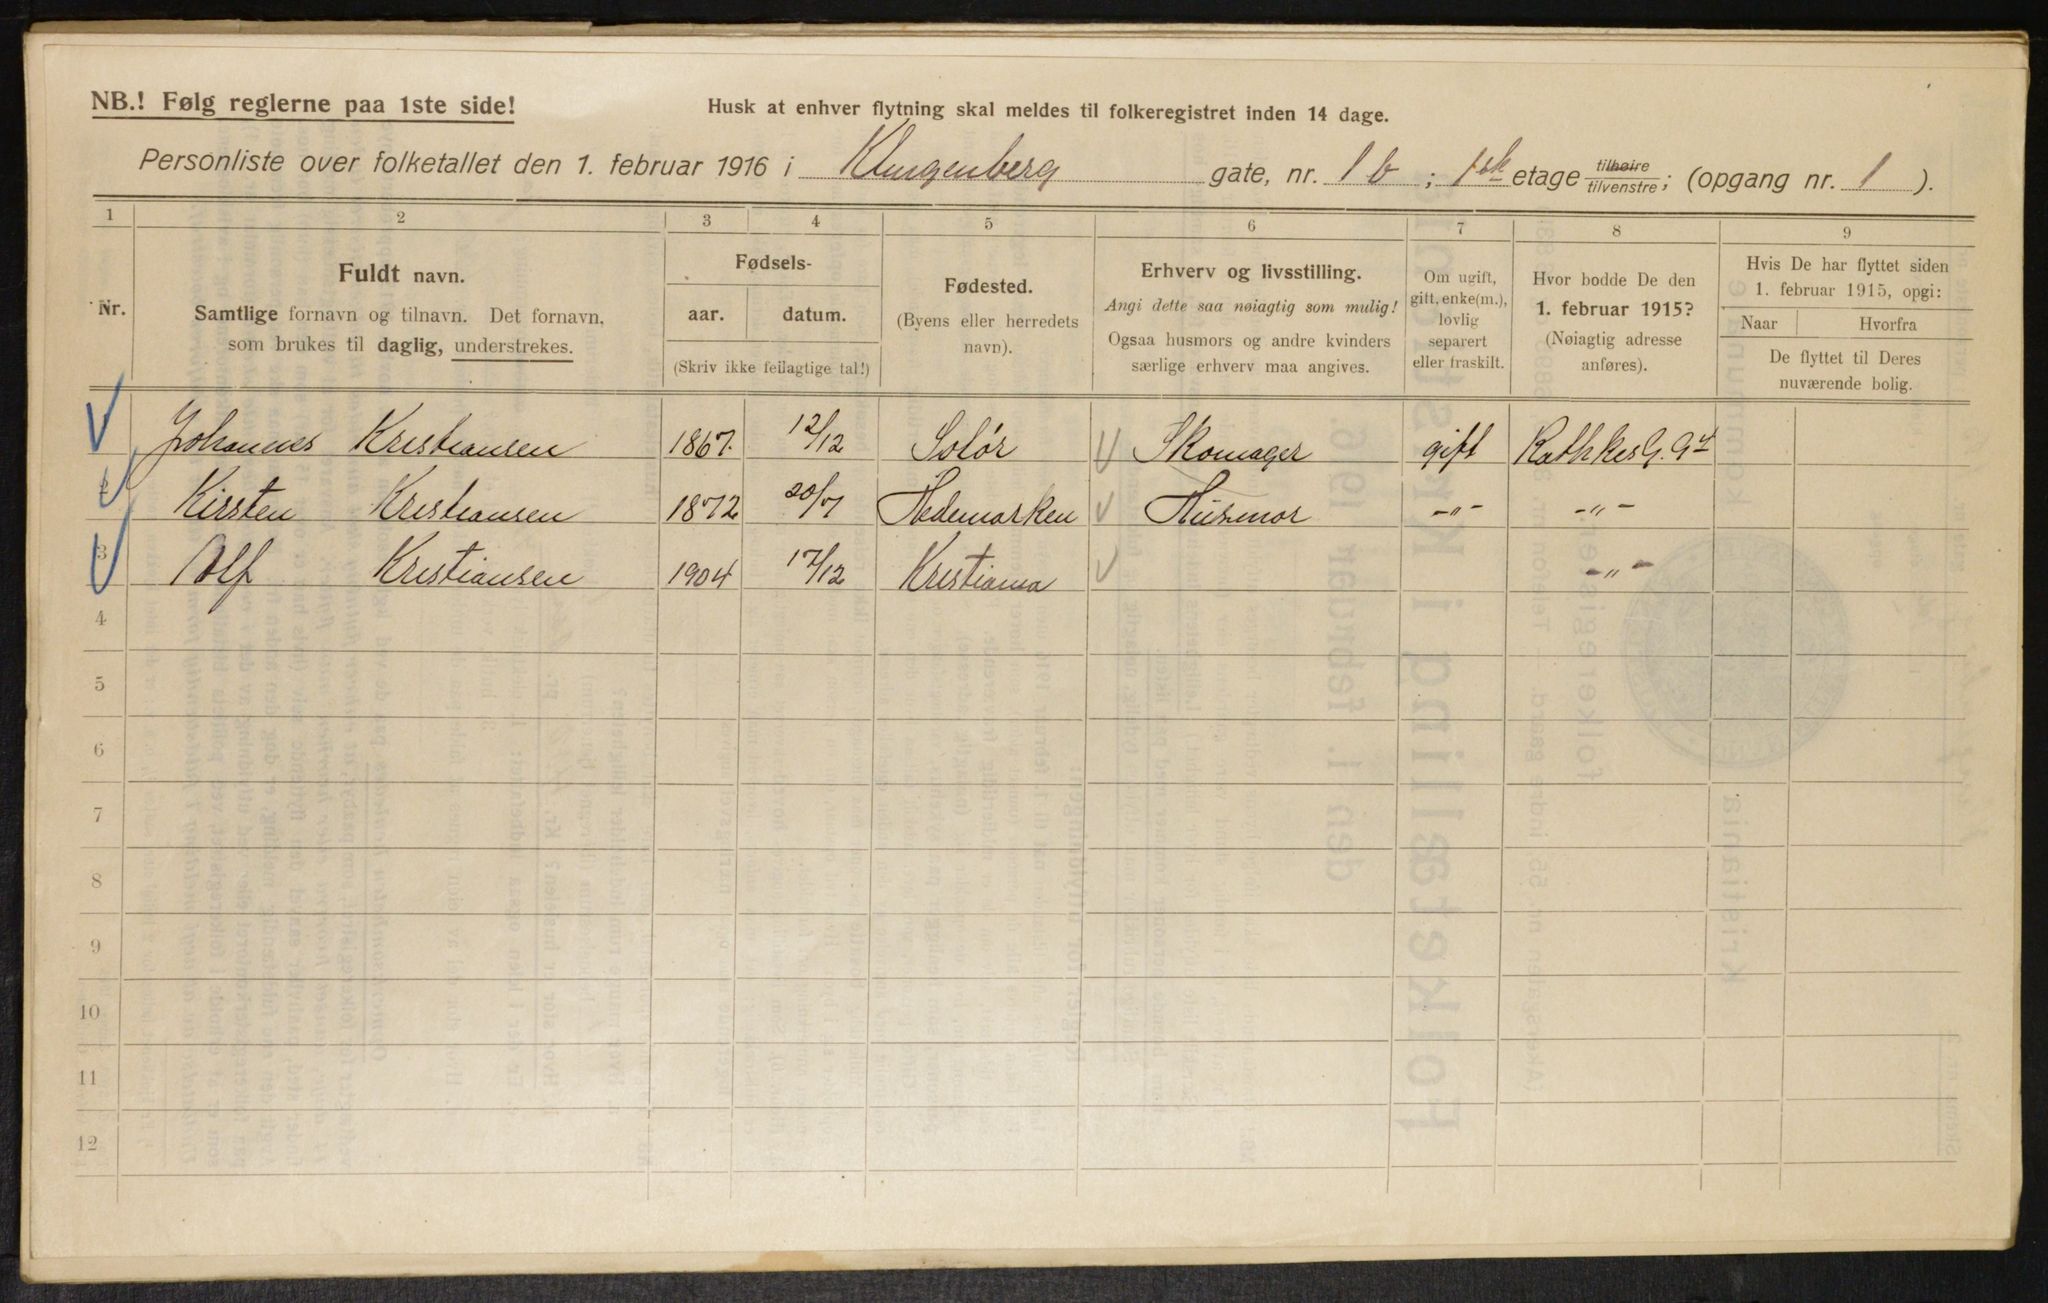 NB.! Følg reglerne paa 1ste side!
Husk at enhver flytning skal meldes til folkeregistret inden 14 dage.
Personliste over folketallet den 1. februar 1916 i Klingenberg gate, nr. 1 b ; 1ste etage tilhøire tilvenstre ; (opgang nr. 1 ).
1 2 3 4 5 6 7 8 9
Nr.
Fuldt navn.
Samtlige fornavn og tilnavn. Det fornavn,
som brukes til daglig, understrekes.
Fødsels-
aar. datum.
(Skriv ikke feilagtige tal!)
Fødested.
(Byens eller herredets
navn).
Erhverv og livsstilling.
Angi dette saa nøiagtig som mulig!
Ogsaa husmors og andre kvinders
særlige erhverv maa angives.
Om ugift,
gift, enke(m.),
lovlig
separert
eller fraskilt.
Hvor bodde De den
1. februar 1915?
(Nøiagtig adresse
anføres).
Hvis De har flyttet siden
1. februar 1915, opgi:
Naar Hvorfra
De flyttet til Deres
nuværende bolig.
Johannes Kristiansen 1867. 12/12 Solør Skomager gift Rathkes G.
Kirsten Kristiansen 1872 20/7 Hedemarken Husmor -"- -"-
3 Alf Kristiansen 1904 17/12 Kristiania -"-
4
5
6
7
8
9
10
11
12